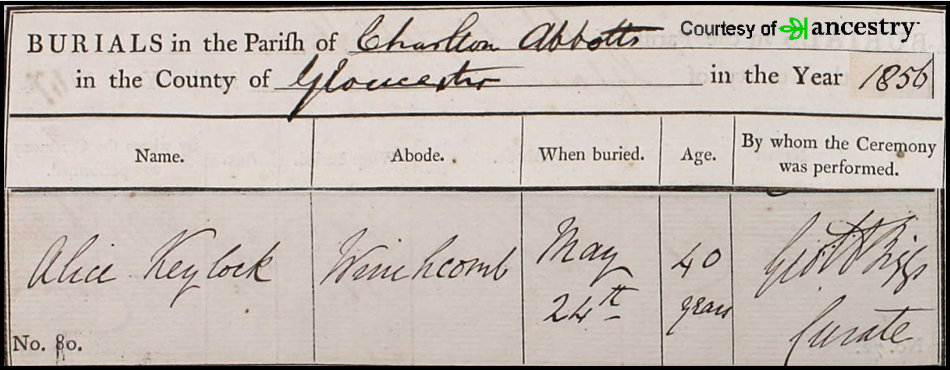 Courtesy of ancestry
BURIALS in the Pariſh of Charlton Abbotts
in the County of Gloucester in the Year 1856
Name. Abode. When buried. Age. By whom the Ceremony was performed.
Alice Keylock Winchcomb May 24th 40 years Biggs Curate
No. 80.